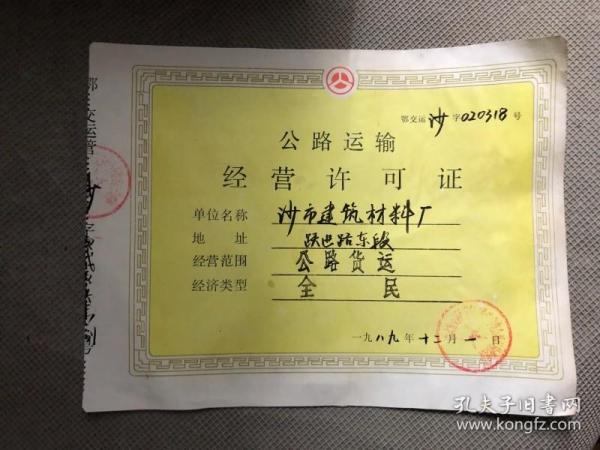 鄂交运沙字020318号
公路运输
经营许可证
单位名称 沙市建筑材料厂
地址 跃进路东段
经营范围 公路货运
经济类型 全民
一九八九年十二月一日
鄂交运管
沙字
号
孔夫子旧书网
www.kongfz.com